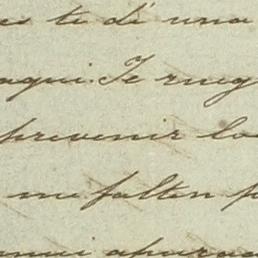 es te dé una
aqui. Te rueg
prevenir lo
me falten p